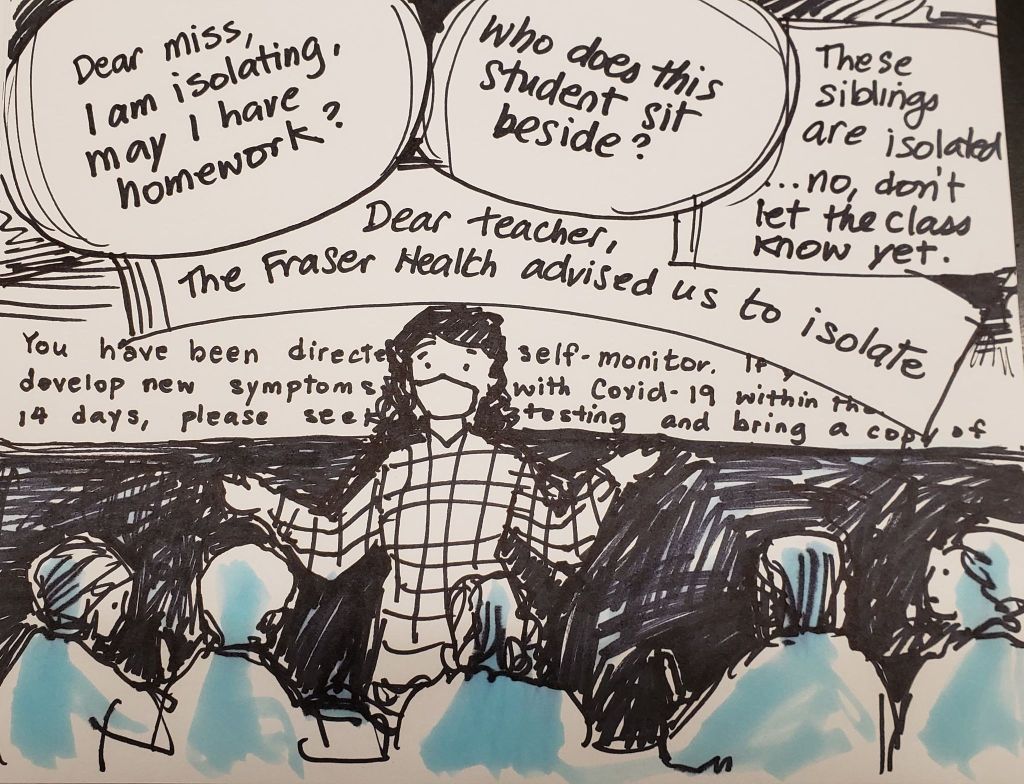 Dear miss,
I am isolating.
may I have
homework?
Who does this
student sit
beside?
These
siblings
are isolated
...no, don't
let the class
know yet.
Dear teacher,
The Fraser Health advised us to isolate
You have been directe self-monitor. If
develop new symptoms with Covid-19 within the
14 days, please seek testing and bring a copy of